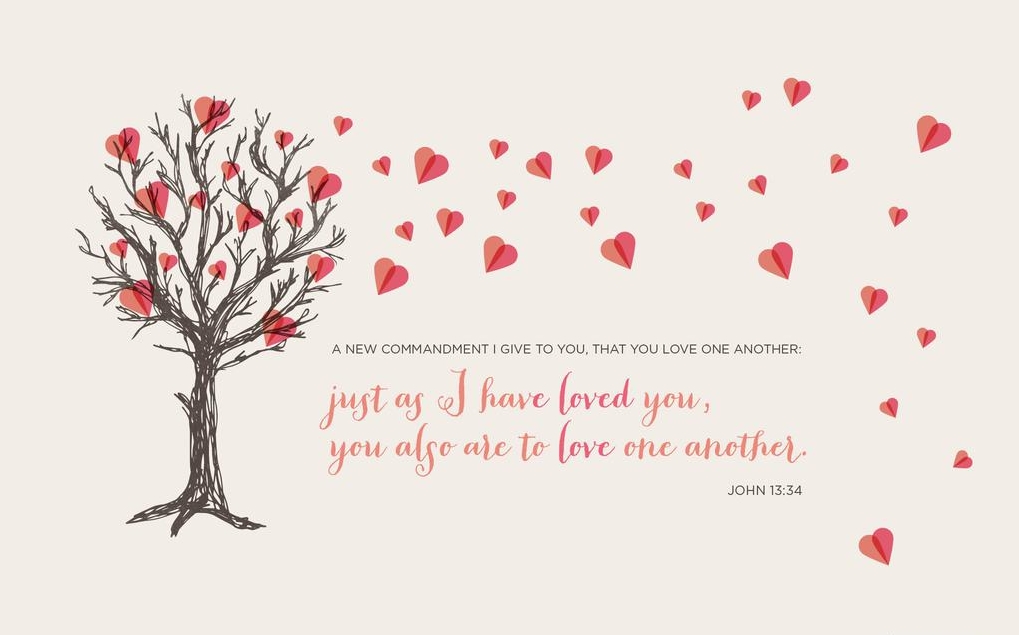 A NEW COMMANDMENT I GIVE TO YOU, THAT YOU LOVE ONE ANOTHER:
just as I have loved you,
you also are to love one another.
JOHN 13:34